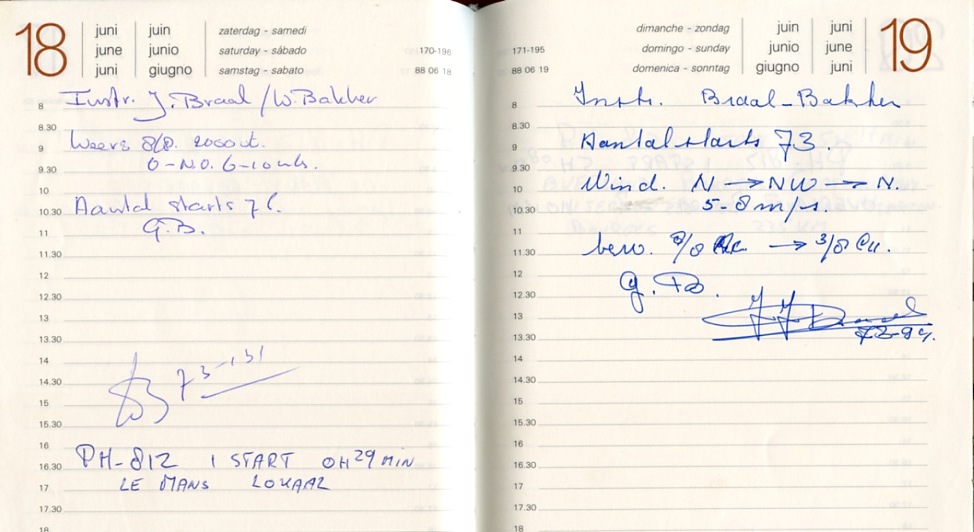 18
juni juin zaterdag - samedi
june junio saturday - sábado 170-196
juni giugno samstag - sabato 88 06 18
8 Instr. J. Braal / W. Bakker
8.30
9 Weer: 8/8. 2000 ft.
9.30 O-NO. 6-10 kts.
10
10.30 Aantal starts 76.
11 G.B.
11.30
12
12.30
13
13.30
14
14.30 73-151
15
15.30
16
16.30 PH-812 1 START 0H29MIN
17 LE MANS LOKAAL
17.30
18
dimanche - zondag juin juni
171-195 domingo - sunday junio june
88 06 19 domenica - sonntag giugno juni
19
8 Instr. Braal-Bakker
8.30
9 Aantal starts 73.
9.30
10 Wind. N → NW → N.
10.30 5-8 m/s.
11
11.30 bew. 8/8 Ac → 3/8 Cu.
12
12.30 G.B.
13
13.30
14
14.30
15
15.30
16
16.30
17
17.30
18